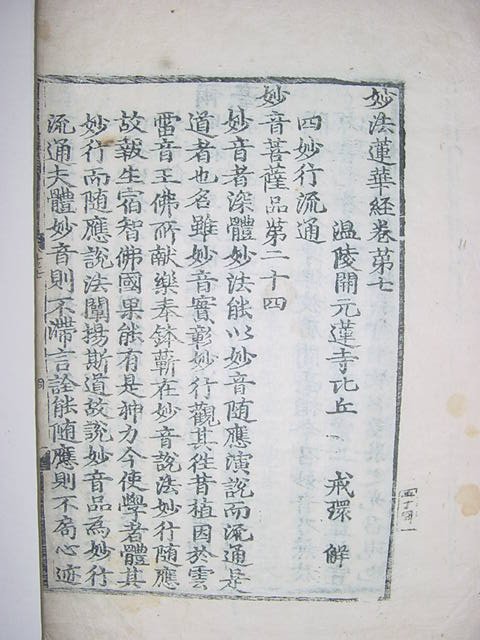 妙法蓮華經卷第七
温陵開元蓮寺比丘 戒環 解
四妙行流通
妙音菩薩品第二十四
妙音者深體妙法能以妙音随應演說而流通是
道者也名雖妙音實彰妙行觀其徃昔植因於雲
雷音王佛所献樂奉鉢蘄在妙音說法妙行随應
故報生宿智佛國果能有是神力今使學者體其
妙行而随應說法闡揚斯道故說妙音品為妙行
流通夫體妙音則不滯言詮能随應則不局心迹